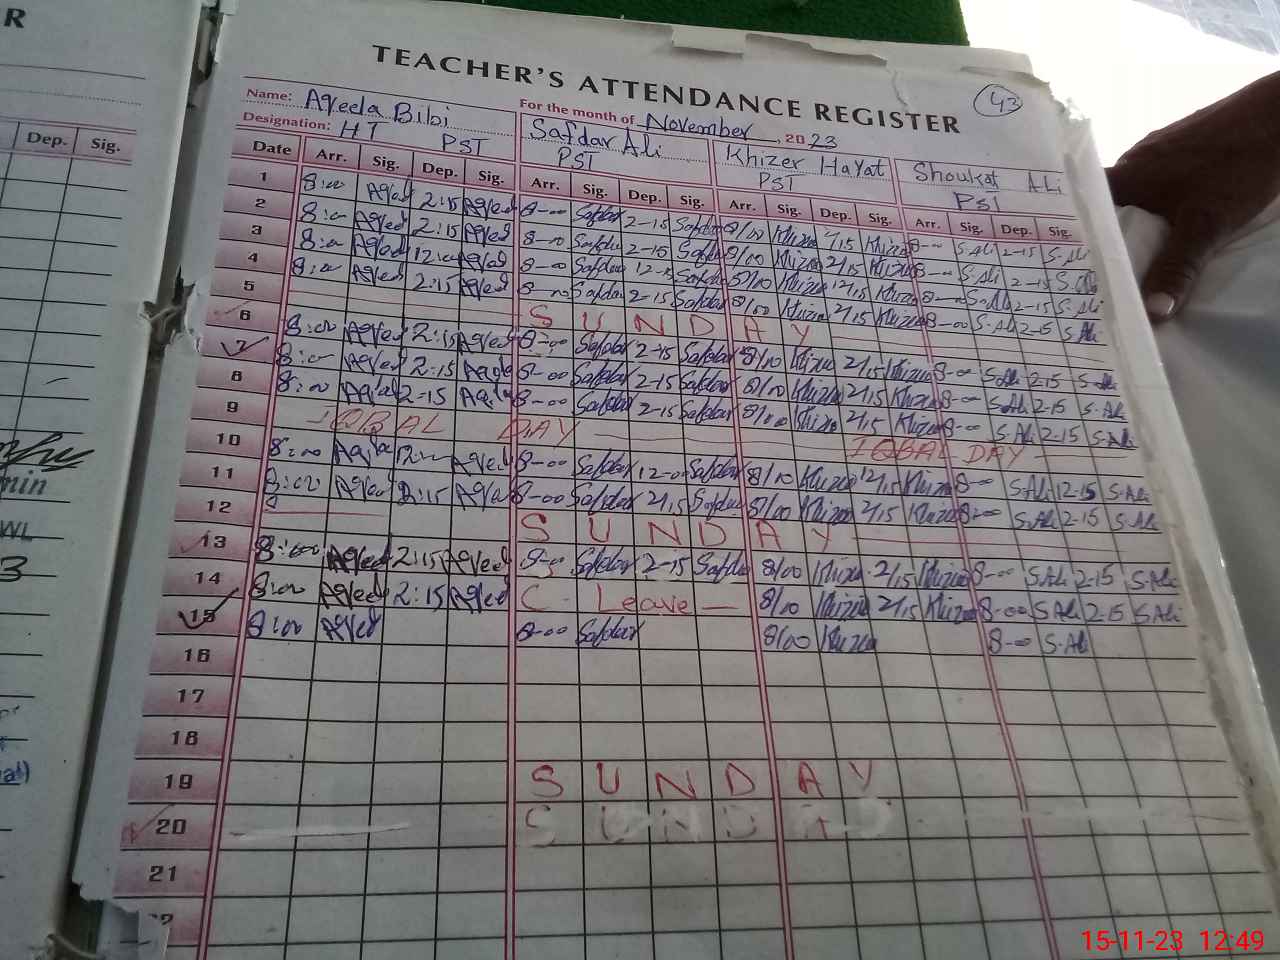 R
TEACHER'S ATTENDANCE REGISTER
43
Name: Aqeela Bibi
For the month of November, 2023
Designation: HT PST
Safdar Ali PST
Khizer Hayat PST
Shoukat Ali PST
Dep. Sig.
Date Arr. Sig. Dep. Sig. Arr. Sig. Dep. Sig. Arr. Sig. Dep. Sig. Arr. Sig. Dep. Sig.
1 8:00 Aqeel 2:15 Aqeel 8-00 Safdar 2-15 Safdar 8/00 Khizer 2/15 Khizer 8-00 S.Ali 2-15 S.Ali
2 8:00 Aqeel 2:15 Aqeel 8-00 Safdar 2-15 Safdar 8/00 Khizer 2/15 Khizer 8-00 S.Ali 2-15 S.Ali
3 8:00 Aqeel 12:00 Aqeel 8-00 Safdar Safdar 8/00 Khizer 12/15 Khizer 8-00 S.Ali S.Ali
4 8:00 Aqeel 2:15 Aqeel 8-00 Safdar 2-15 Safdar 8/00 Khizer 2/15 Khizer 8-00 S.Ali 2-15 S.Ali
5 SUNDAY
6 8:00 Aqeel 2:15 Aqeel 8-00 Safdar 2-15 Safdar 8/00 Khizer 2/15 Khizer 8-00 S.Ali 2-15 S.Ali
7 8:00 Aqeel 2:15 Aqeel 8-00 Safdar 2-15 Safdar 8/00 Khizer 2/15 Khizer 8-00 S.Ali 2-15 S.Ali
8 8:00 Aqeel 2-15 Aqeel 8-00 Safdar 2-15 Safdar 8/00 Khizer 2/15 Khizer 8-00 S.Ali 2-15 S.Ali
9 IQBAL DAY IQBAL DAY
10 8:00 Aqeel Aqeel 8-00 Safdar 12-00 Safdar 8/00 Khizer 12/15 Khizer 8-00 S.Ali 12-15 S.Ali
11 8:00 Aqeel 2:15 Aqeel 8-00 Safdar 2/15 Safdar 8/00 Khizer 2/15 Khizer 8-00 S.Ali 2-15 S.Ali
12 SUNDAY
13 8:00 Aqeel 2:15 Aqeel 8-00 Safdar 2-15 Safdar 8/00 Khizer 2/15 Khizer 8-00 S.Ali 2-15 S.Ali
14 8:00 Aqeel 2:15 Aqeel C-Leave 8/00 Khizer 2/15 Khizer 8-00 S.Ali 2-15 S.Ali
15 8:00 Aqeel 8-00 Safdar 8/00 Khizer 8-00 S.Ali
16
17
18
19 SUNDAY
20 SUNDA
21
15-11-23 12:49